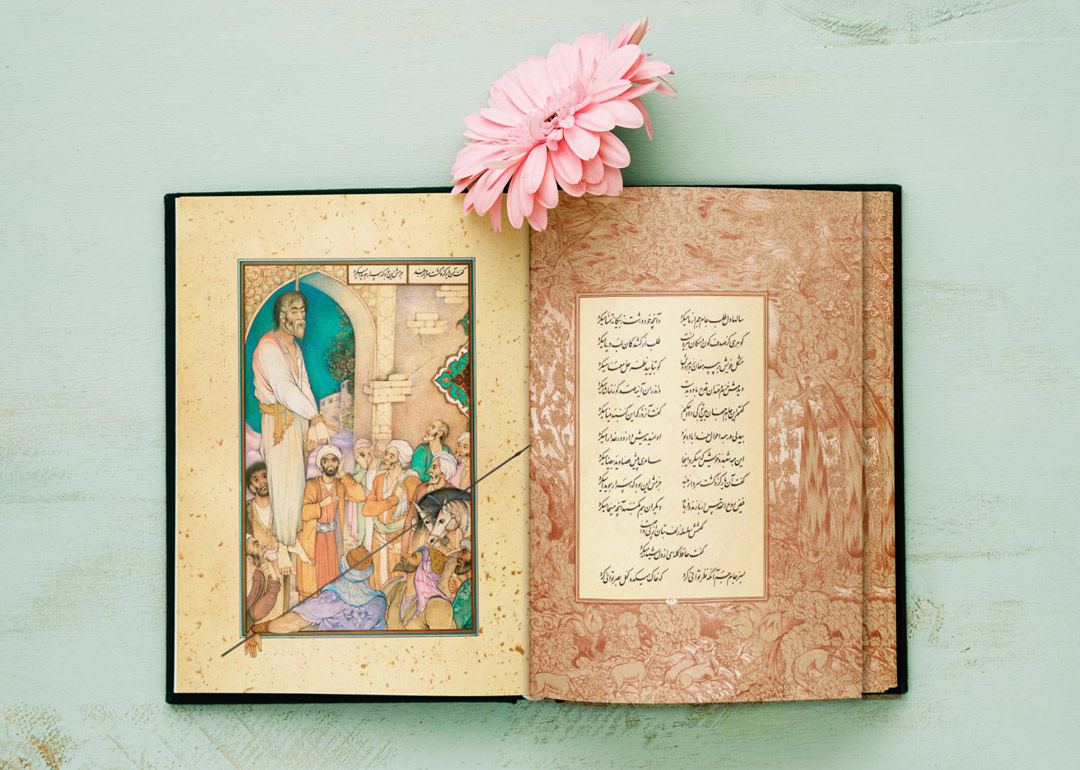 سالها دل طلب جام جم از ما میکرد وآنچه خود داشت ز بیگانه تمنا میکرد
گوهری کز صدف کون و مکان بیرونست طلب از گمشدگان لب دریا میکرد
مشکل خویش بر پیر مغان بردم دوش کو بتایید نظر حل معما میکرد
دیدمش خرم و خندان قدح باده بدست واندران آینه صد گونه تماشا میکرد
گفتم این جام جهان بین بتو کی داد حکیم گفت آنروز که این گنبد مینا میکرد
بیدلی در همه احوال خدا با او بود او نمیدیدش و از دور خدا را میکرد
این همه شعبده خویش که میکرد اینجا سامری پیش عصا و ید بیضا میکرد
گفت آن یار کزو گشت سر دار بلند جرمش این بود که اسرار هویدا میکرد
فیض روح القدس ار باز مدد فرماید دیگران هم بکنند آنچه مسیحا میکرد
گفتمش سلسله زلف بتان از پی چیست
گفت حافظ گله ای از دل شیدا میکرد
بسر جام جم آنگه نظر توانی کرد که خاک میکده کحل بصر توانی کرد
گفت آن یار کزو گشت سر دار بلند جرمش این بود که اسرار هویدا میکرد